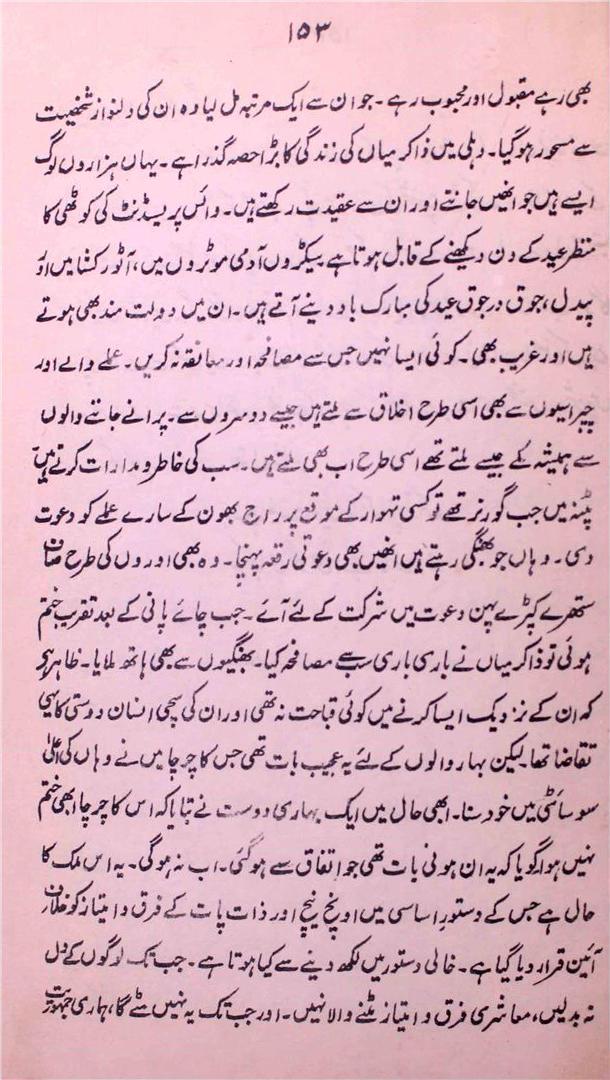 ۱۵۳
بھی رہے مقبول اور محبوب رہے۔ جو ان سے ایک مرتبہ مل لیا وہ ان کی دلنواز شخصیت
سے مسحور ہوگیا۔ دہلی میں ذاکر میاں کی زندگی کا بڑا حصہ گذرا ہے۔ یہاں ہزاروں لوگ
ایسے ہیں جو انھیں جانتے اور ان سے عقیدت رکھتے ہیں۔ وائس پریسڈنٹ کی کوٹھی کا
منظر عید کے دن دیکھنے کے قابل ہوتا ہے سیکڑوں آدمی موٹروں میں، آٹو رکشا میں اور
پیدل، جوق در جوق عید کی مبارک باد دینے آتے ہیں۔ ان میں دولت مند بھی ہوتے
ہیں اور غریب بھی۔ کوئی ایسا نہیں جس سے مصافحہ اور معانقہ نہ کریں۔ عملے والے اور
چپراسیوں سے بھی اسی طرح اخلاق سے ملتے ہیں جیسے دوسروں سے۔ پرانے جاننے والوں
سے ہمیشہ کے جیسے ملتے تھے اسی طرح اب بھی ملتے ہیں۔ سب کی خاطر و مدارات کرتے ہیں۔
پٹنہ میں جب گورنر تھے تو کسی تہوار کے موقع پر راج بھون کے سارے عملے کو دعوت
دی۔ وہاں جو بھنگی رہتے ہیں انھیں بھی دعوتی رقعہ پہنچا۔ وہ بھی اوروں کی طرح صاف
ستھرے کپڑے پہن دعوت میں شرکت کے لئے آئے۔ جب چائے پانی کے بعد تقریب ختم
ہوئی تو ذاکر میاں نے باری باری سب سے مصافحہ کیا۔ بھنگیوں سے بھی ہاتھ ملایا۔ ظاہر ہے
کہ ان کے نزدیک ایسا کرنے میں کوئی قباحت نہ تھی اور ان کی سچی انسان دوستی کا یہی
تقاضا تھا لیکن بہار والوں کے لئے یہ عجیب بات تھی جس کا چرچا میں نے وہاں کی اعلیٰ
سوسائٹی میں خود سنا۔ ابھی حال میں ایک بہاری دوست نے بتایا کہ اس کا چرچا ابھی ختم
نہیں ہوا۔ گویا کہ یہ ان ہونی بات تھی جو اتفاق سے ہوگئی۔ اب نہ ہوگی۔ یہ اس ملک کا
حال ہے جس کے دستور اساسی میں اونچ نیچ اور ذات پات کے فرق و امتیاز کو خلاف
آئین قرار دیا گیا ہے۔ خالی دستور میں لکھ دینے سے کیا ہوتا ہے۔ جب تک لوگوں کے دل
نہ بدلیں، معاشری فرق و امتیاز مٹنے والا نہیں۔ اور جب تک یہ نہیں مٹے گا، ہماری جمہوریت